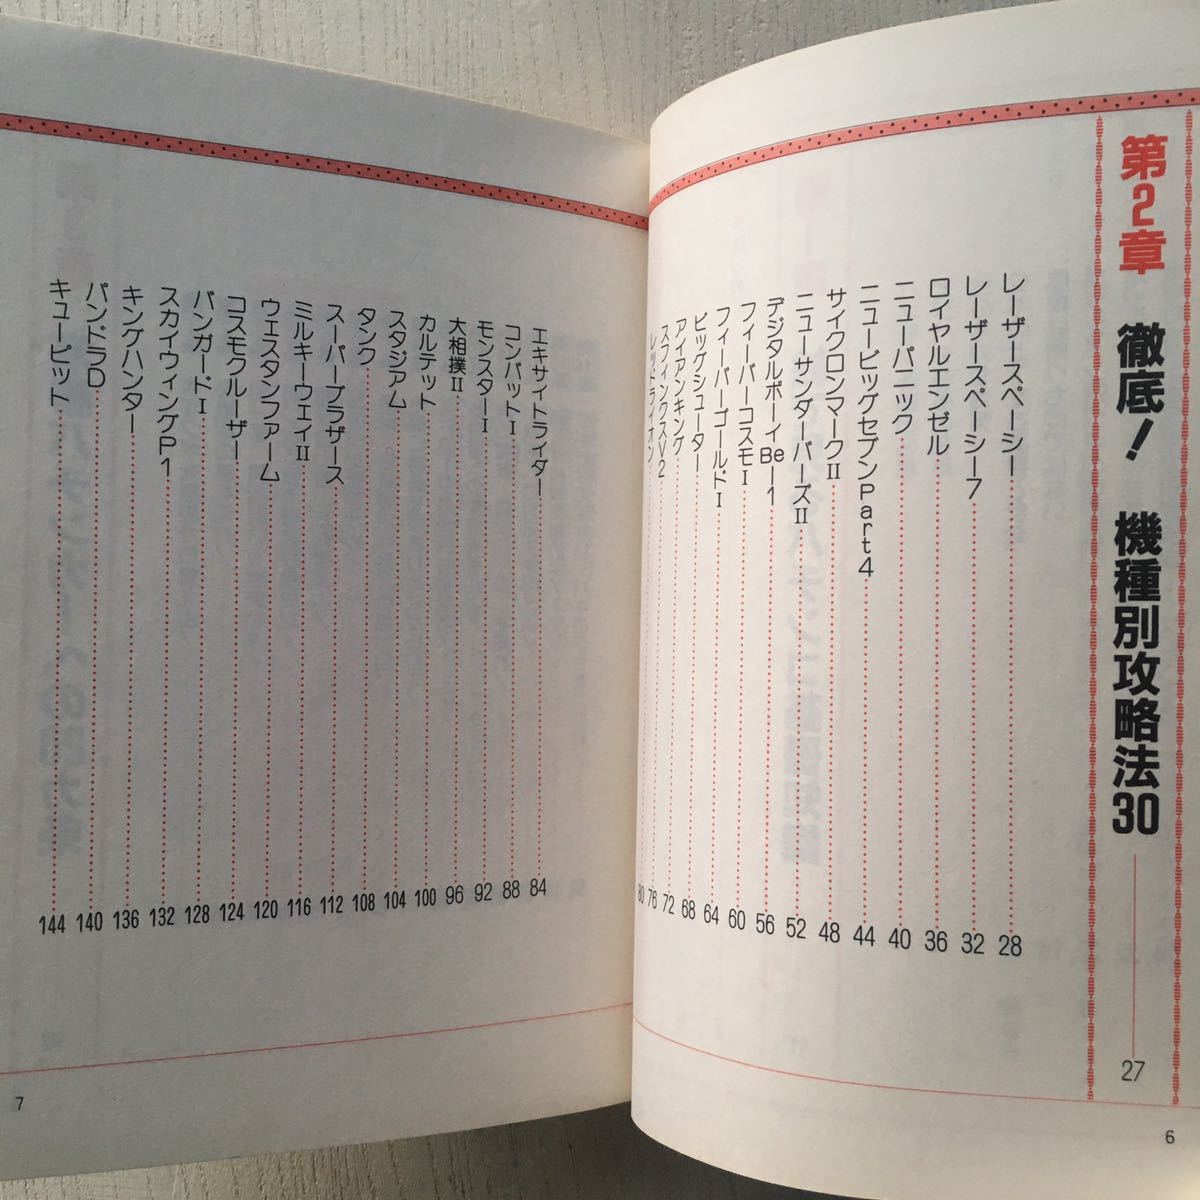 第2章 徹底！ 機種別攻略法30 27
レーザースペーシー 28
レーザースペーシー7 32
ロイヤルエンゼル 36
ニューパニック 40
ニュービッグセブンPart4 44
サイクロンマークII 48
ニューサンダーバーズII 52
デジタルボーイBe-1 56
フィーバーコスモI 60
フィーバーゴールドI 64
ビッグシューター 68
アイアンキング 72
スフィンクスV2 76
レッドライオン 80
6
エキサイトライダー 84
コンバットI 88
モンスターI 92
大相撲II 96
カルテット 100
スタジアム 104
タンク 108
スーパーブラザース 112
ミルキーウェイII 116
ウェスタンファーム 120
コスモクルーザー 124
バンガードI 128
スカイウィングP1 132
キングハンター 136
パンドラD 140
キューピット 144
7